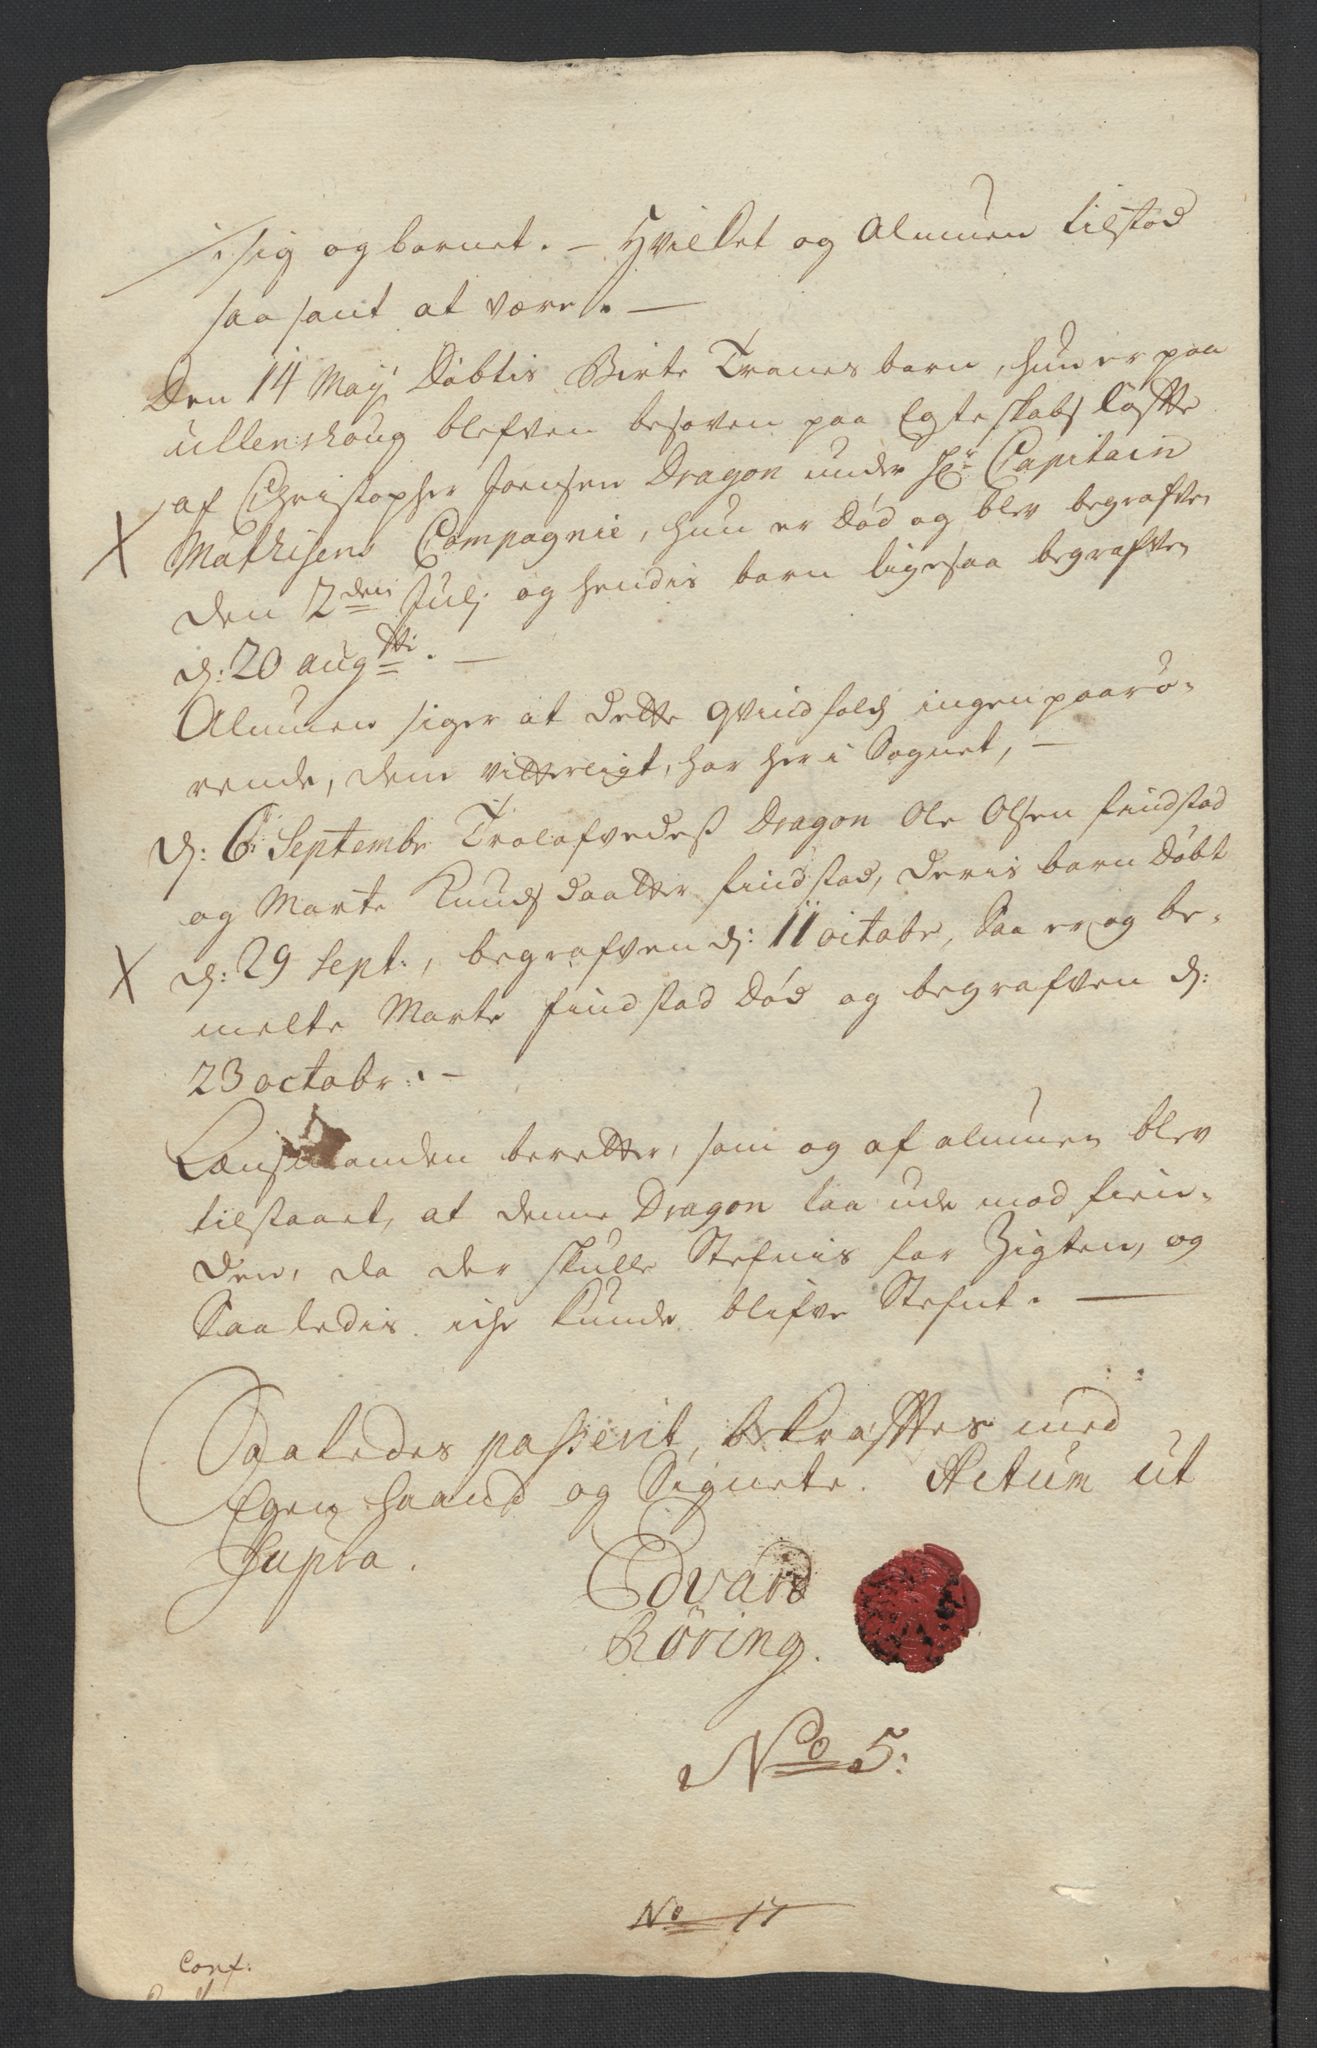 sig og barnet. – Hvilket og Almuen tilstod
saa sant at være. –
Den 14 Maij Døbtis Birte Tranes barn, hun er paa
ullenshoug blefven besoven paa Egteskabs løffte
af Christopher Joensen Dragon under Hr Capitain
Mathisens Compagnie, hun er død og blev begrafven
den 2den Julj og hendis barn ligesaa begrafven
d: 20 augtti. –
Almuen siger at dette qvindfolch ingen paarø-
rende, dem vitterligt, har her i Sognet, –
d: 6 Septembr Trolofvedeß Dragon Ole Olsen findstad
og Marte Knudsdaatter findstad, deris barn Døbt
d: 29 Sept., begrafven d: 11 octobr, Saa er og be-
melte Marte findstad død og begrafven d:
23 octobr: –
Lænsmanden beretter, som og af almuen blev
tilstaaet, at denne Dragon laa ude mod fien-
den, da der skulle Stefnis for Zigten, og
Saaledis iche kunde blifve Stefnt. –
Saaledes passerit, bekrafftes med
Egen haand og Signete. Actum ut
Supra.
Edvard
Röring.
No 5:
No 17
Conf: